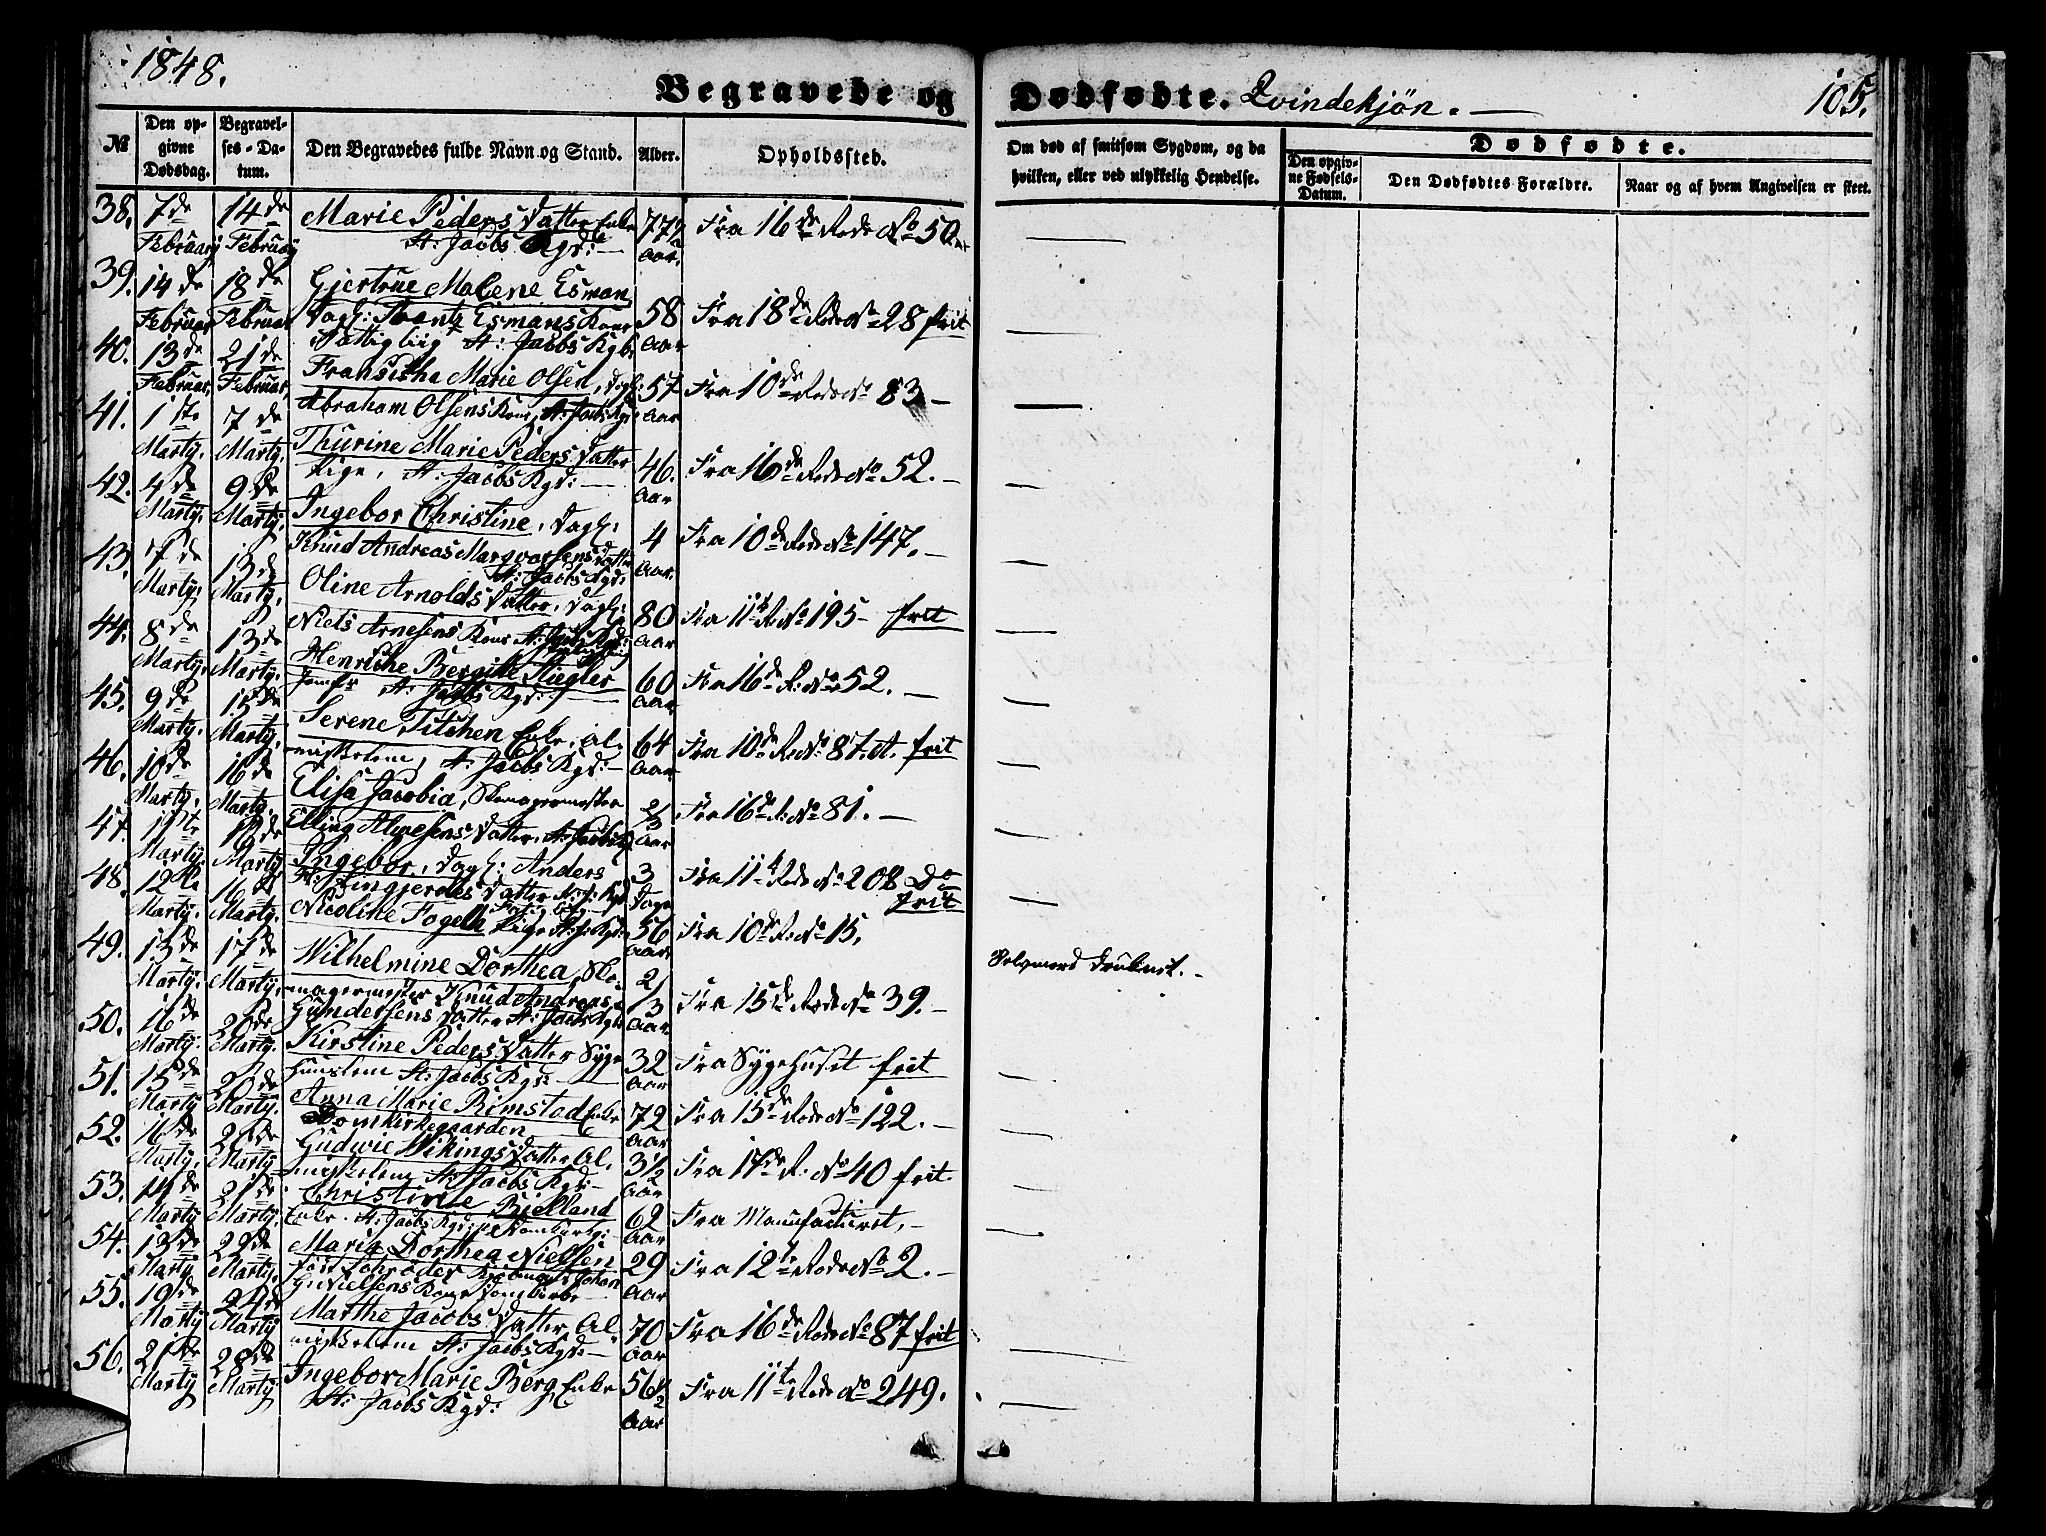 1848.
Begravede og Dødfødte. Qvindekjøn. 105.
No
Den opgivne Dødsdag.
Begravelses-Datum.
Den Begravedes fulde Navn og Stand.
Alder.
Opholdssted.
Om død af smitsom Sygdom, og da hvilken, eller ved ulykkelig Hendelse.
Dødfødte.
Den opgivne Fødsels-Datum.
Den Dødfødtes Forældre.
Naar og af hvem Angivelsen er skeet.
38. 7de Februarij 14de Februarij Marie Peders Datter Enke St: Jacobs Kgd: 77½ Aar. Fra 16de Rode No 50.
39. 14de Februar 18de Februar Gjertrue Malene Esman, Dagl: Esmans Kone St: Jacobs Kgd. 58 Aar Fra 18de Rode No 28 frit
40. 13de Februar. 21de Februar. Fransisha Marie Olsen, Dagl: Abraham Olsens Kone, St: Jacobs Kgd: 57 Aar Fra 10de Rode No 83
41. 1ste Martij. 7de Martij. Thurine Marie Peders Datter Pige, St: Jacobs Kgd: 46. Aar Fra 16de Rode No 52.
42. 4de Martij. 9de Martij. Ingebor Christine, Dagl: Knud Andreas Marqvorsens Datter St: Jacobs Kgd: 4 Aar. Fra 10de Rode No 147.
43. 7de Martij. 13de Martij. Oline Arnolds Datter, Dagl: Niels Arnesens Kone St: Jacobs Kgd: 80 Aar Fra 11te R. No 195 frit
44. 8de Martij. 13de Martij. Henriche Bergitte Stiegler Jomfr St: Jacobs Kgd: 60 Aar Fra 16de R: No 52.
45. 9de Martij. 15de Martij. Serene Titchen Enke, Almisselem, St: Jacobs Kgd: 64 Aar Fra 10de R: No 87. A. frit
46. 10de Martij. 16de Martij. Elisa Jacobia, Skomagermester Elling Datter, St: Jacobs 2/3 Aar Fra 16de R: No 81.
47. 11te Martij. Martij Ingebor, Dagl: Anders Datter St: J: Kgd 3 Dage Fra 11te Rode No 208 Do frit
48. 12te Martij. 16de Martij. Nicoline Fogell, Pige St: J: Kgd: 56 Aar Fra 10de R: No 15.
49. 13de Martij. 17de Martij. Wilhelmine Dorthea, Skomagermester Knud Andreas Gundersens Datter St: Jacobs Kgd 2/3 Aar Fra 15de Rode No 39.
50. 16de Martij. 20de Martij. Kirstine Peders Datter Sygehuuslem St: Jacobs Kgd: 32 Aar Fra Sygehuset frit
51. 15de Martij 20de Martij. Anna Marie Rimstad Enke Domkirkegaarden 72 Aar Fra 15de Rode No 122.
52. 16de Martij. Martij Gudwie Wikings Datter Almisselem St: Jacobs Kgd: 3½ Aar Fra 17de R: No 40 frit.
53. Martij 21de Martij. Christine Bielland Enke. St: Jacobs Kgd: 62 Aar Fra Manufacturet,
54. 13de Martij 22de Martij. Maria Dorthea Nielsen født Schrøder Kjøbmand Johan G. Nielsens Kone 29 Aar Fra 12te Rode No 2.
55. 19de Martij 24de Martij Marthe Jacobs Datter Almisselem St: Jacobs Kgd: 70 Aar Fra 16de Rode No 87 frit
56. 21de Martij 28de Martij Ingebor Marie Berg Enke St: Jacobs Kgd: 56½ Aar Fra 11te Rode No 249.
Selvmord druknet.